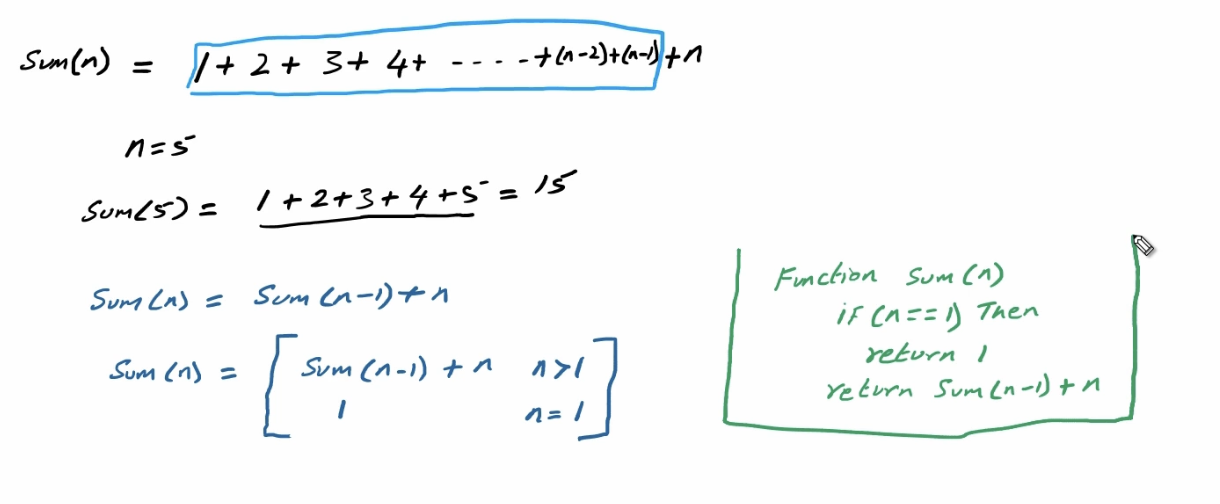 Sum(n) = 1 + 2 + 3 + 4 + - - - - + (n-2) + (n-1) + n
n = 5
Sum(5) = 1 + 2 + 3 + 4 + 5 = 15
Sum(n) = Sum(n-1) + n
Sum(n) = [ Sum(n-1) + n n>1 ]
1 n = 1
Function Sum(n)
if (n == 1) Then
return 1
return Sum(n-1) + n